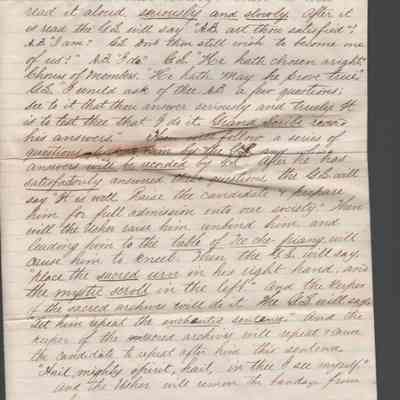 read it aloud, seriously and slowly. After it
is read the G.S. will say "A.B. art thou satisfied";
A.B. "I am". G.S. Dost thou still wish to become one
of us?" A.B. "I do" G.S. "He hath chosen aright"
Chorus of members. "He hath may he prove true."
G.S. I would ask of thee A.B. a few questions;
see to it that thou answer seriously and truely. It
is to test thee that I do it. Grand Scribe record
his answers." Then will follow a series of
questions asked him by the G.S. and whose
answers will be recorded by G.S. After he has
satisfactorily answered these questions the G.S. will
say It is well. Raise the candidate & prepare
him for full admission into our society." Then
will the Usher raise him unbind him and
leading him to the table of will
cause him to kneel. Then the G.S. will say.
"place the sacred urn in his right hand, and
the mystic scroll in the left" and the keeper
of the sacred archives will do it. The G.S. will say
"Let him repeat the enchanted sentence." And the
keeper of the sacred archives will repeat & cause
the candidate to repeat after him this sentence
"Hail, mighty spirit, hail, in thee I see myself."
And the Usher will remove the bandage from